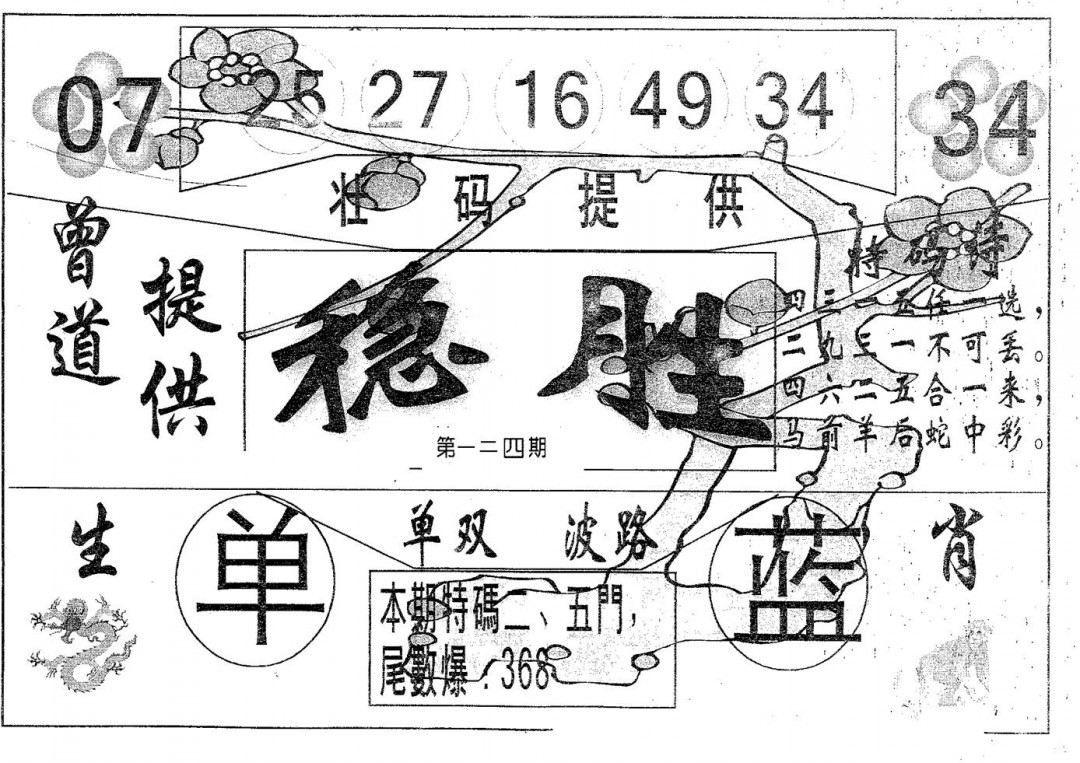 07 25 27 16 49 34 34
壮码提供
曾道
提供
稳胜
第一二四期
特码诗
四三一五任一选，
二九三一不可丢。
四六二五合一来，
马前羊后蛇中彩。
生肖
单
单双 波路
蓝
本期特碼二、五門，
尾數爆：368